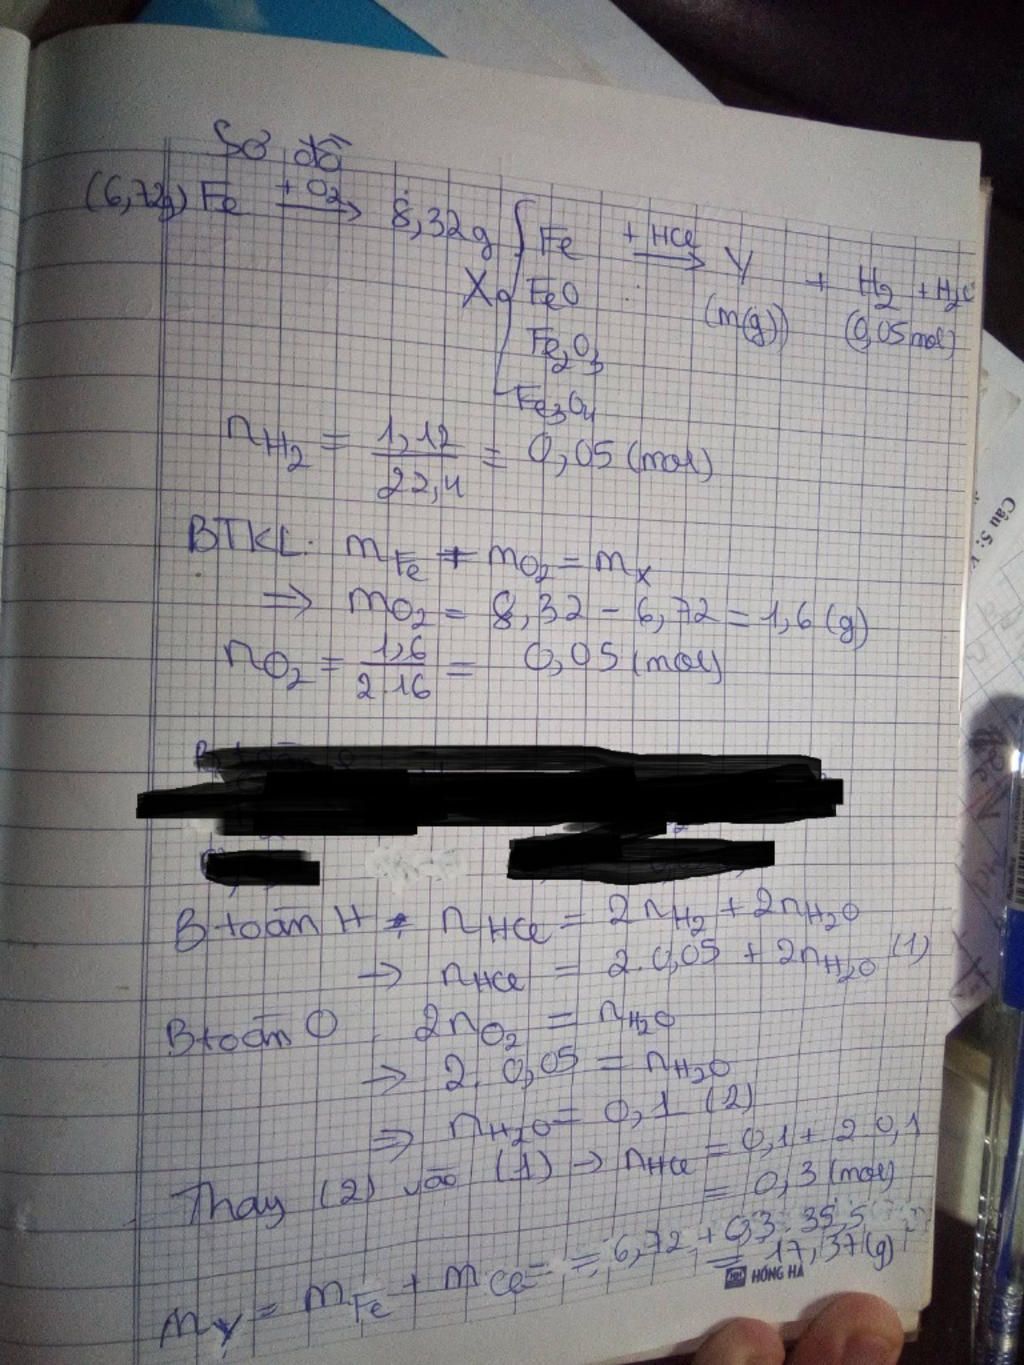 Sơ đồ
(6,72g) Fe + O2 → 8,32g X { Fe + HCl → Y + H2 + H2O
FeO (m(g)) (0,05 mol)
Fe2O3
Fe3O4
nH2 = 1,12/22,4 = 0,05 (mol)
BTKL: mFe + mO2 = mX
⇒ mO2 = 8,32 - 6,72 = 1,6 (g)
nO2 = 1,6/2.16 = 0,05 (mol)
B toàn H : nHCl = 2nH2 + 2nH2O
→ nHCl = 2.0,05 + 2nH2O (1)
B toàn O : 2nO2 = nH2O
⇒ 2. 0,05 = nH2O
⇒ nH2O = 0,1 (2)
Thay (2) vào (1) → nHCl = 0,1 + 2.0,1
= 0,3 (mol)
mY = mFe + mCl- = 6,72 + 0,3.35,5
= 17,37 (g)
HỒNG HÀ
Câu 5: